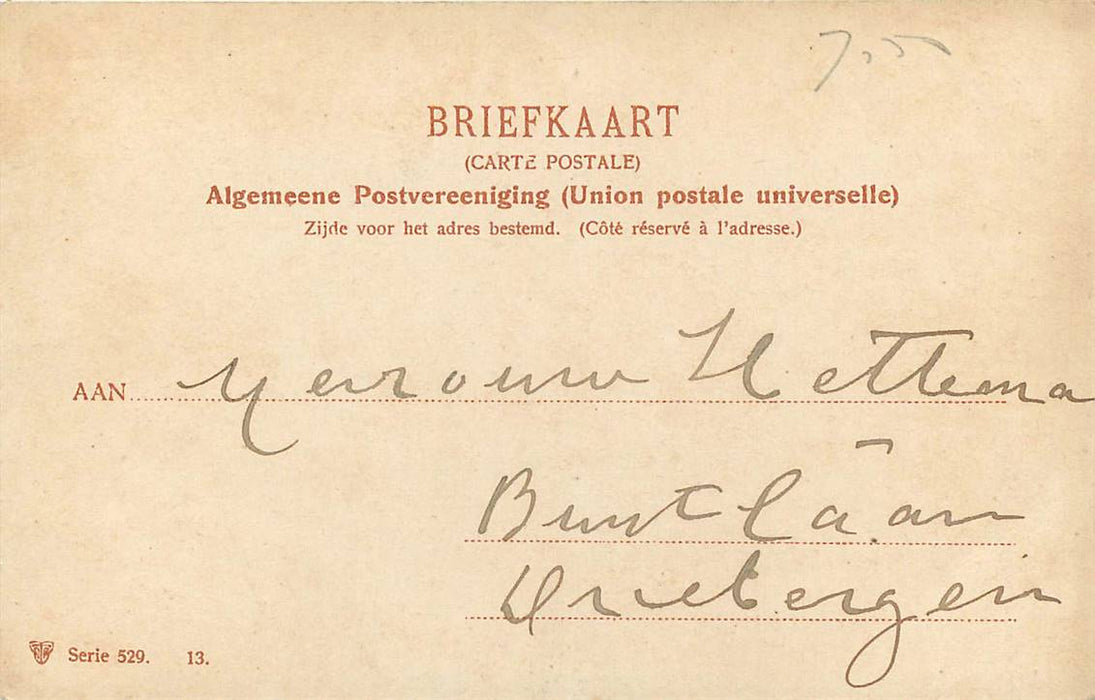 7,50
BRIEFKAART
(CARTE POSTALE)
Algemeene Postvereeniging (Union postale universelle)
Zijde voor het adres bestemd. (Côté réservé à l'adresse.)
AAN Mevrouw Hettema
Buntlaan
Driebergen
Serie 529. 13.